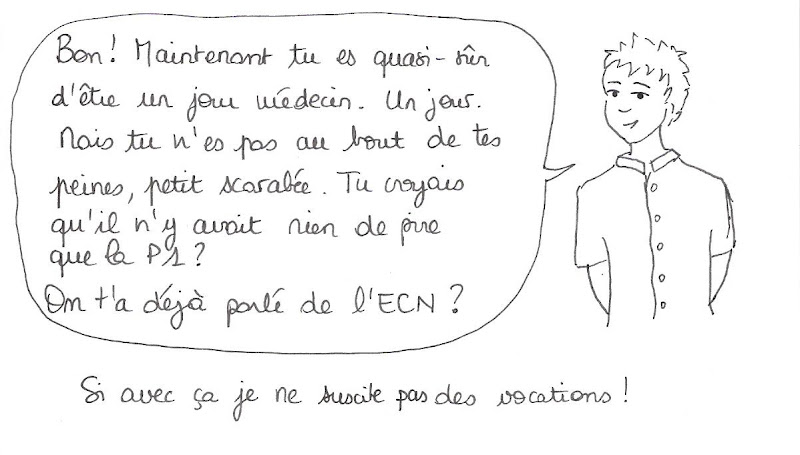 Bon! Maintenant tu es quasi-sûr
d'être un jour médecin. Un jour.
Mais tu n'es pas au bout de tes
peines, petit scarabée. Tu croyais
qu'il n'y avait rien de pire
que la P1?
On t'a déjà parlé de l'ECN?
Si avec ça je ne suscite pas des vocations!